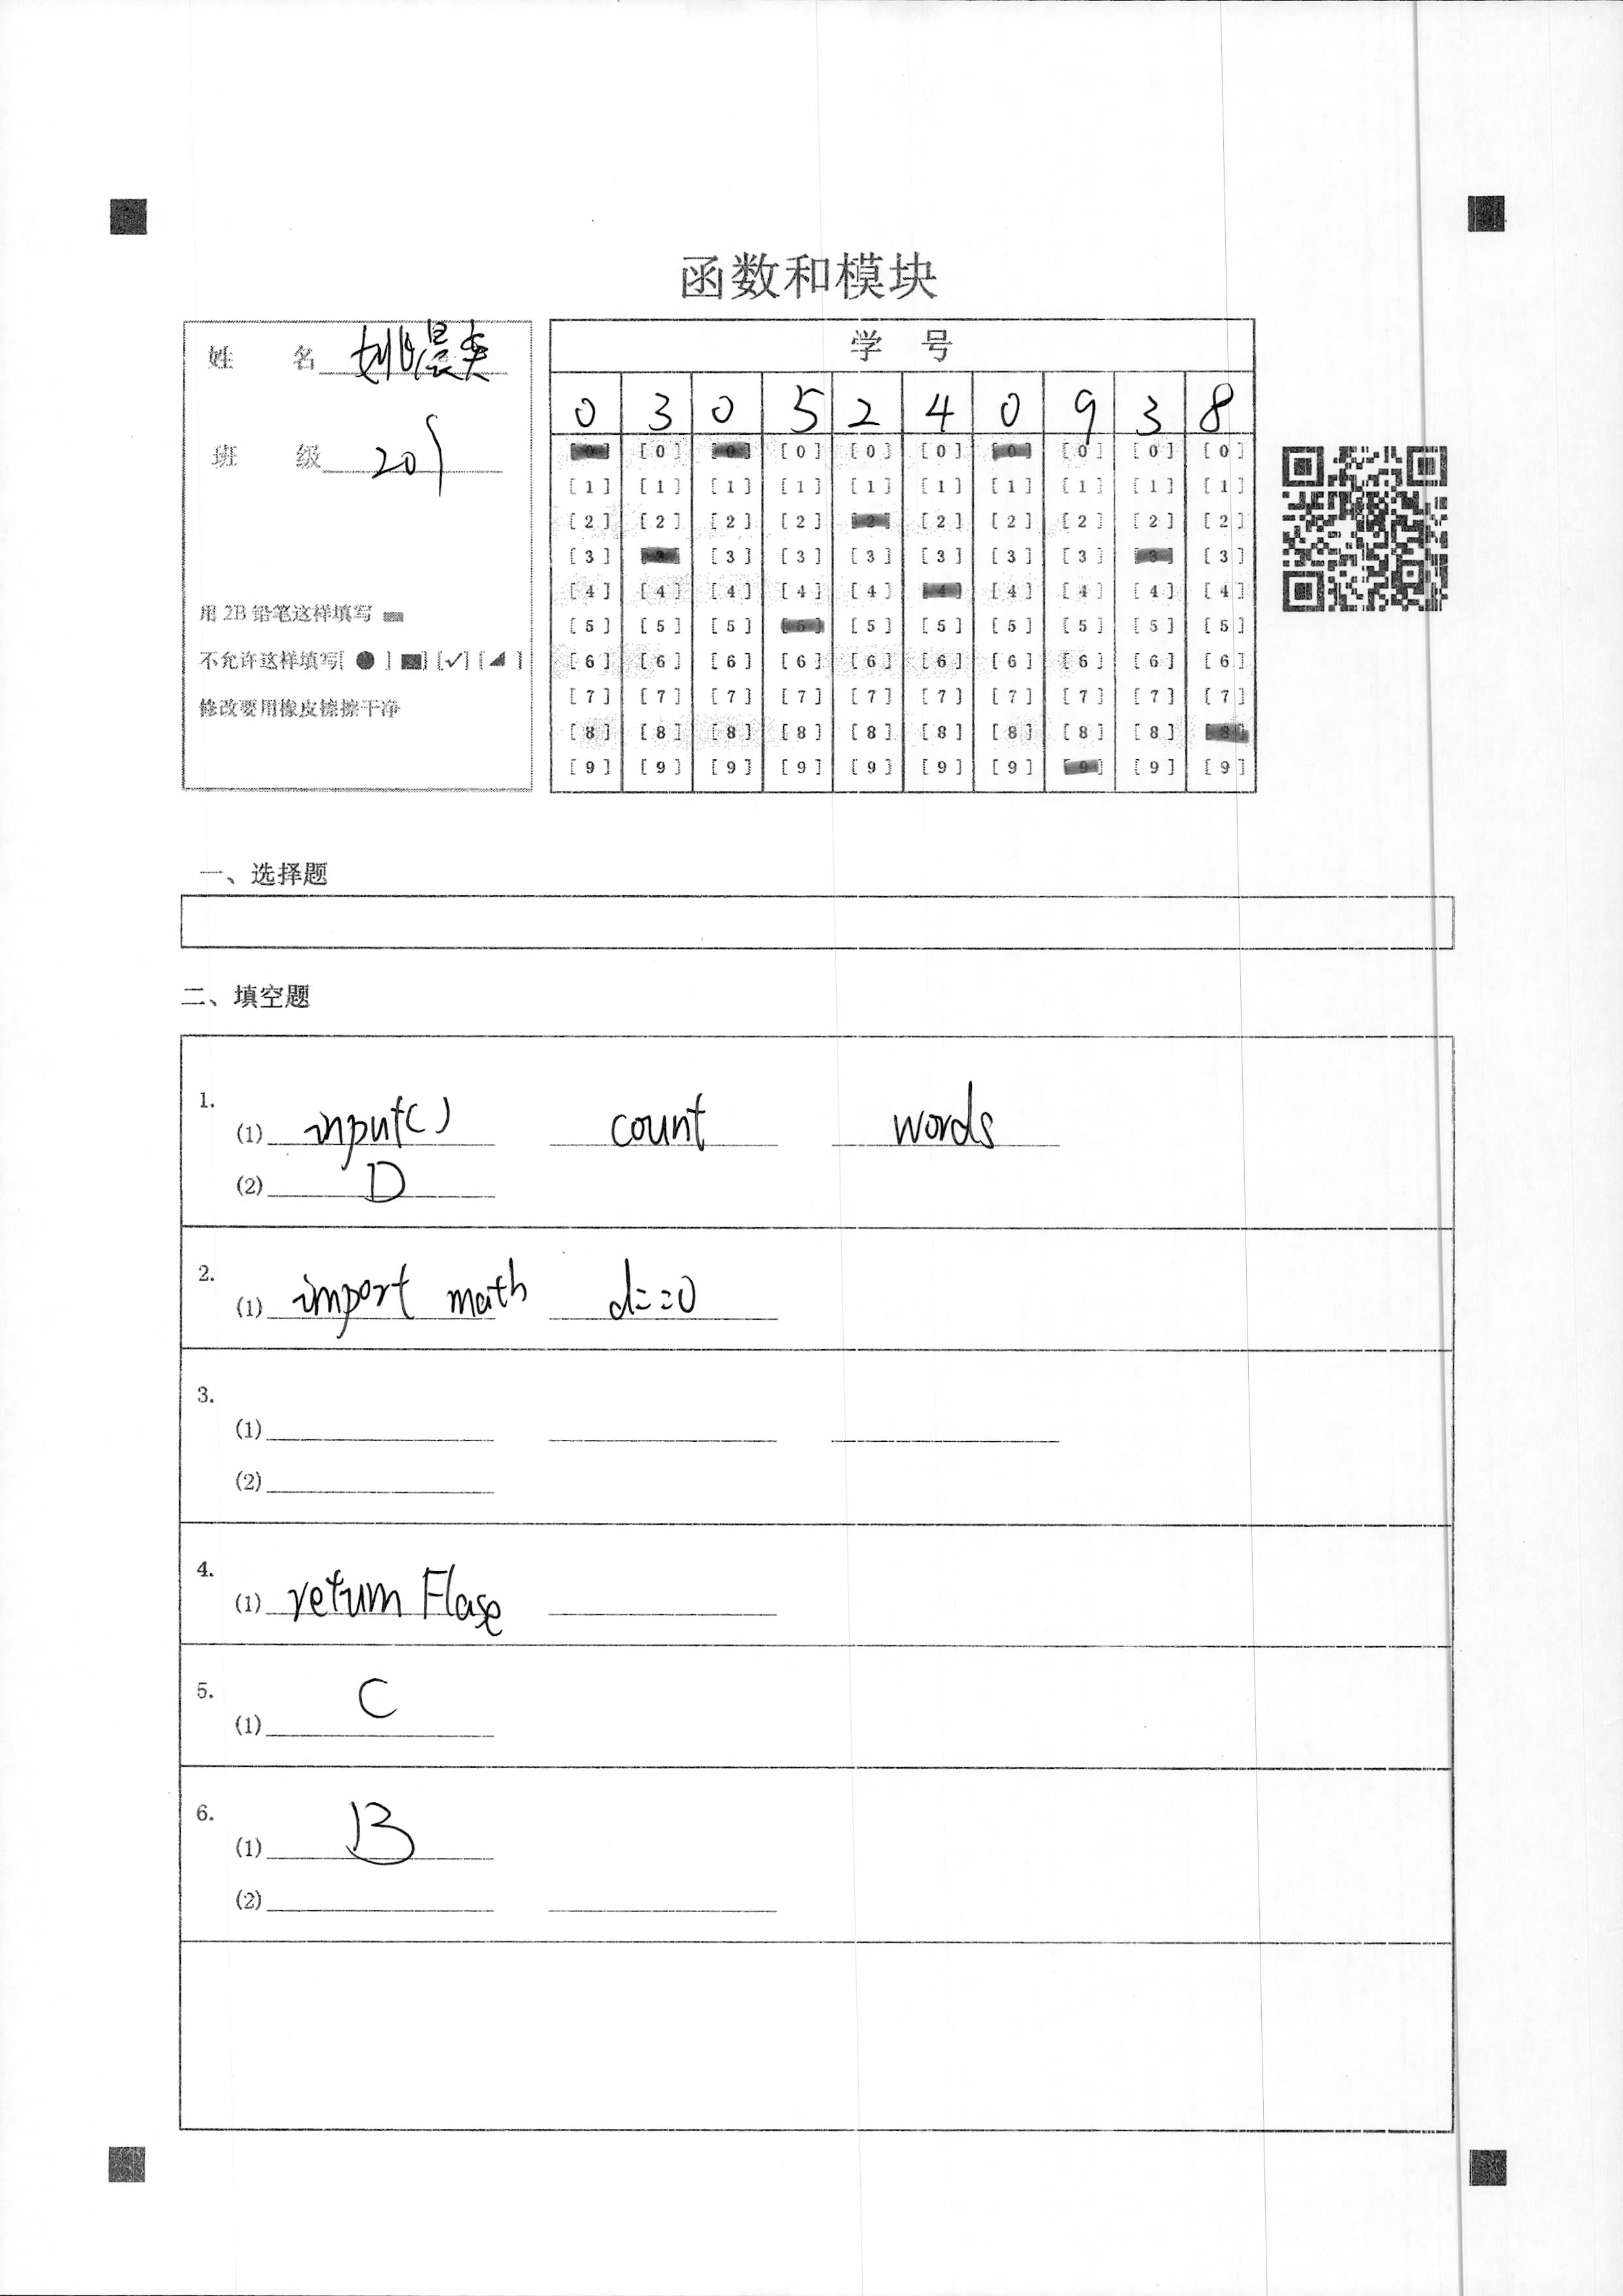 函数和模块
姓 名
班 级 209
用 2B 铅笔这样填写
不允许这样填写[ ● ] [■] [✓] [◢ ]
修改要用橡皮擦擦干净
学 号
0 3 0 5 2 4 0 9 3 8
[0] [0] [0] [0] [0] [0] [0] [0] [0] [0]
[1] [1] [1] [1] [1] [1] [1] [1] [1] [1]
[2] [2] [2] [2] [2] [2] [2] [2] [2] [2]
[3] [3] [3] [3] [3] [3] [3] [3] [3] [3]
[4] [4] [4] [4] [4] [4] [4] [4] [4] [4]
[5] [5] [5] [5] [5] [5] [5] [5] [5] [5]
[6] [6] [6] [6] [6] [6] [6] [6] [6] [6]
[7] [7] [7] [7] [7] [7] [7] [7] [7] [7]
[8] [8] [8] [8] [8] [8] [8] [8] [8] [8]
[9] [9] [9] [9] [9] [9] [9] [9] [9] [9]
一、选择题
二、填空题
1.
(1) input() count words
(2) D
2.
(1) import math d==0
3.
(1)
(2)
4.
(1) return Flase
5.
(1) C
6.
(1) B
(2)